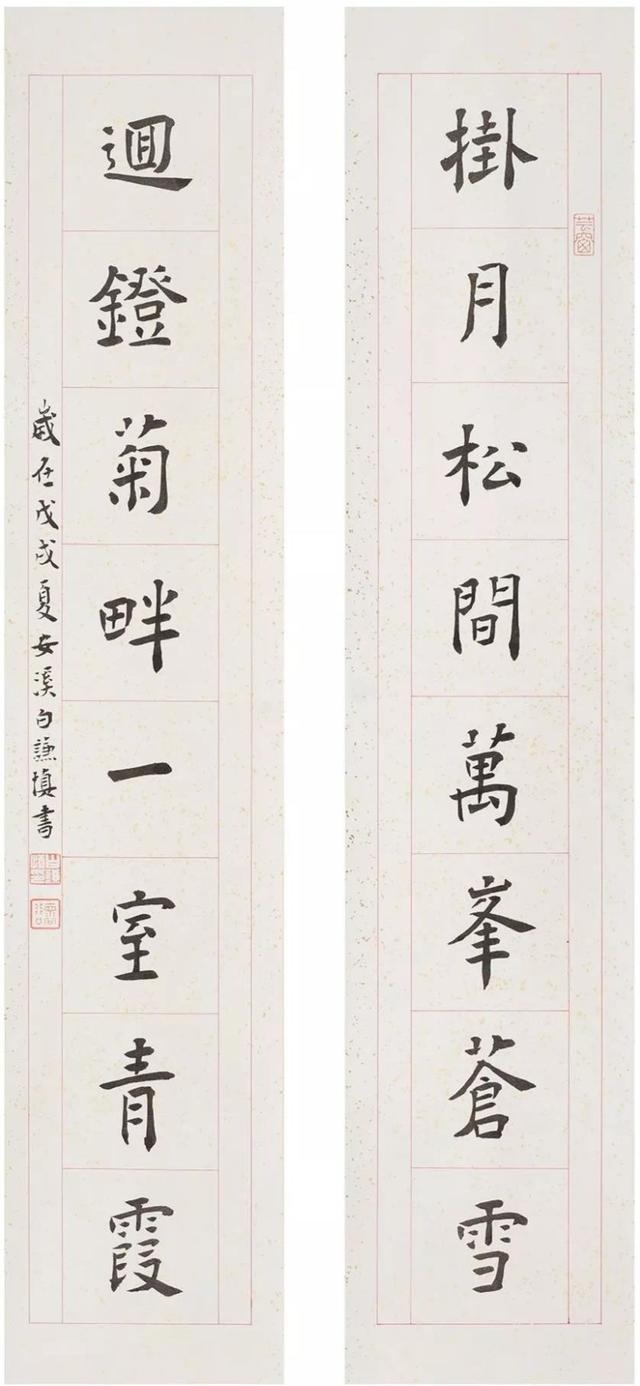 掛月松間萬峯蒼雪
迴鐙菊畔一室青霞
歲在戊戌夏安溪白謙慎書